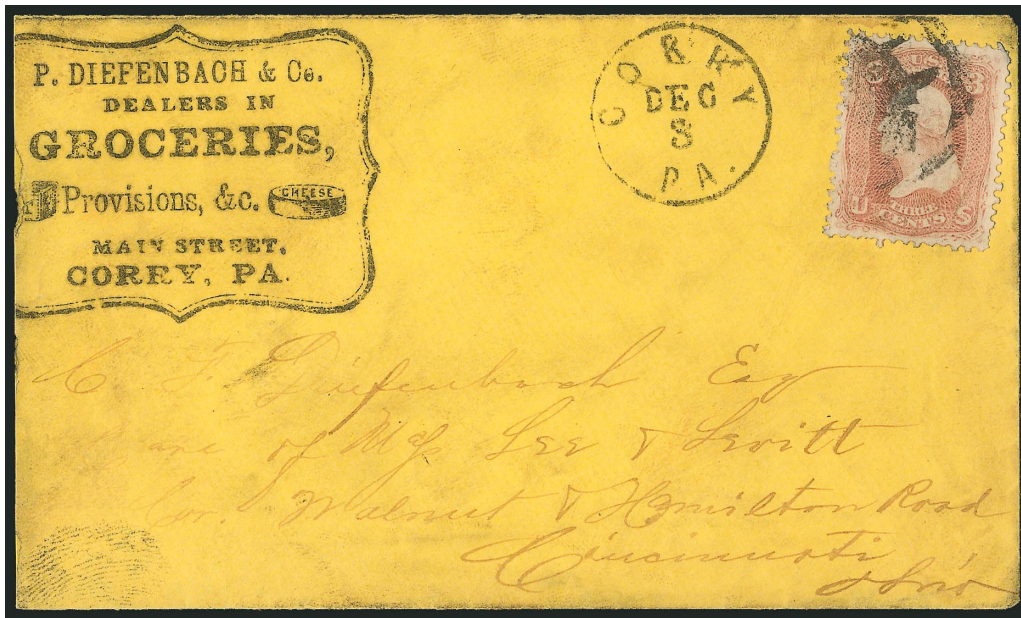 P. DIEFENBACH & Co.
DEALERS IN
GROCERIES,
Provisions, &c.
CHEESE
MAIN STREET,
COREY, PA.
CORRY
DEC
8
PA.
U S
THREE
CENTS
C. F. Diefenbach Esq
Care of Mess Lee & Levitt
Cor. Walnut & Hamilton Road
Cincinnati
Ohio